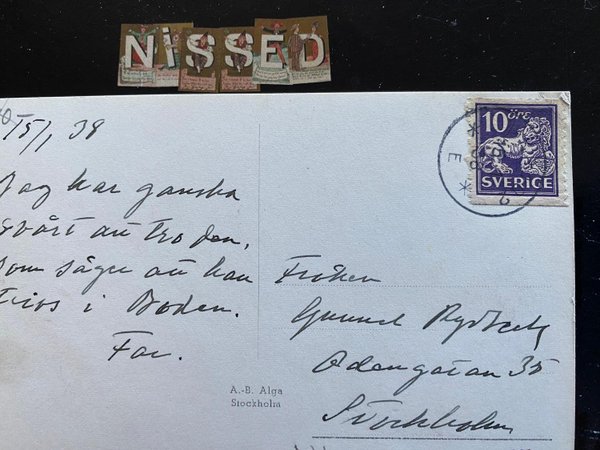 NiSSED
15/1 38
Jag har ganska
svårt att tro den,
som säger att han
trivs i Boden.
Far.
10 öre
SVERIGE
Fröken
Gunnel Rydberg
Odengatan 35
Stockholm
A.-B. Alga
Stockholm